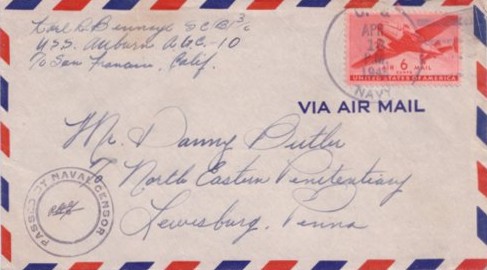 Karl D. Bennage S C B 3/c
U.S.S. Auburn A.G.C.-10
% San Francisco, Calif.
U.S.
APR
18
1945
NAVY
6 CENTS AIR MAIL
UNITED STATES OF AMERICA
VIA AIR MAIL
Mr. Danny Butler
% North Eastern Penitentiary
Lewisburg, Penna
PASSED BY NAVAL CENSOR